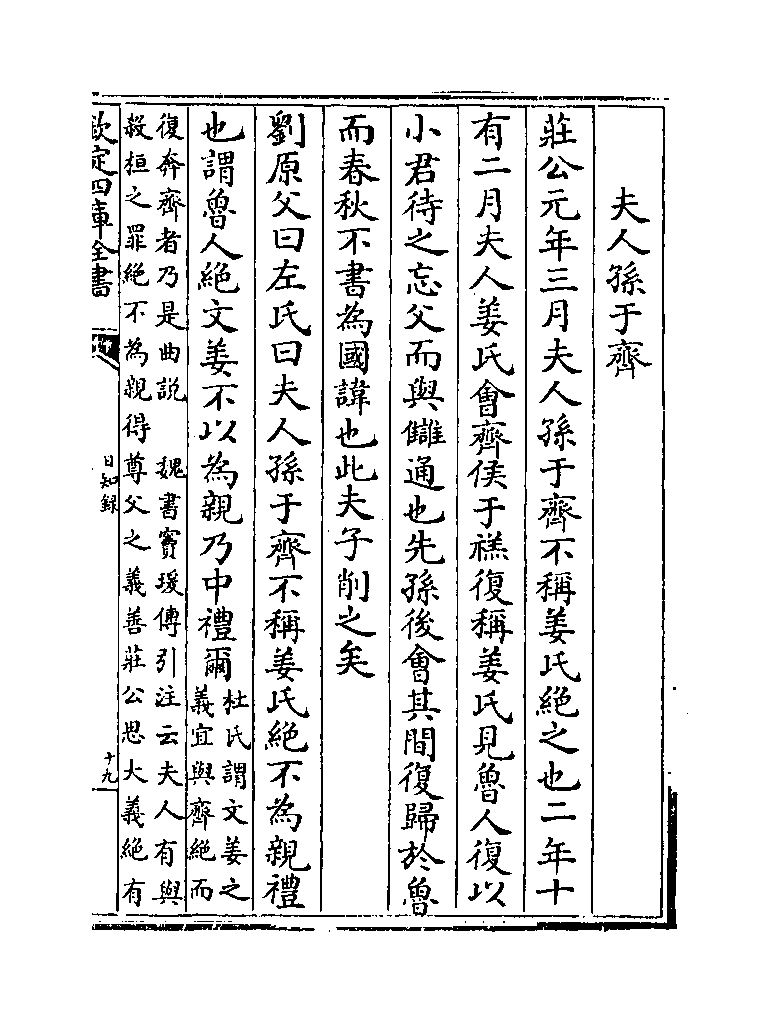 夫人孫于齊
莊公元年三月夫人孫于齊不稱姜氏絶之也二年十
有二月夫人姜氏㑹齊侯于禚復稱姜氏見魯人復以
小君待之忘父而與讎通也先孫後㑹其間復歸於魯
而春秋不書為國諱也此夫子削之矣
劉原父曰左氏曰夫人孫于齊不稱姜氏絶不為親禮
也謂魯人絶文姜不以為親乃中禮爾
杜氏謂文姜之
義宜與齊絶而
復奔齊者乃是曲説　魏書竇瑗傳引注云夫人有與
殺桓之罪絶不為親得尊父之義善莊公思大義絶有
欽定四庫全書
日知錄
十九